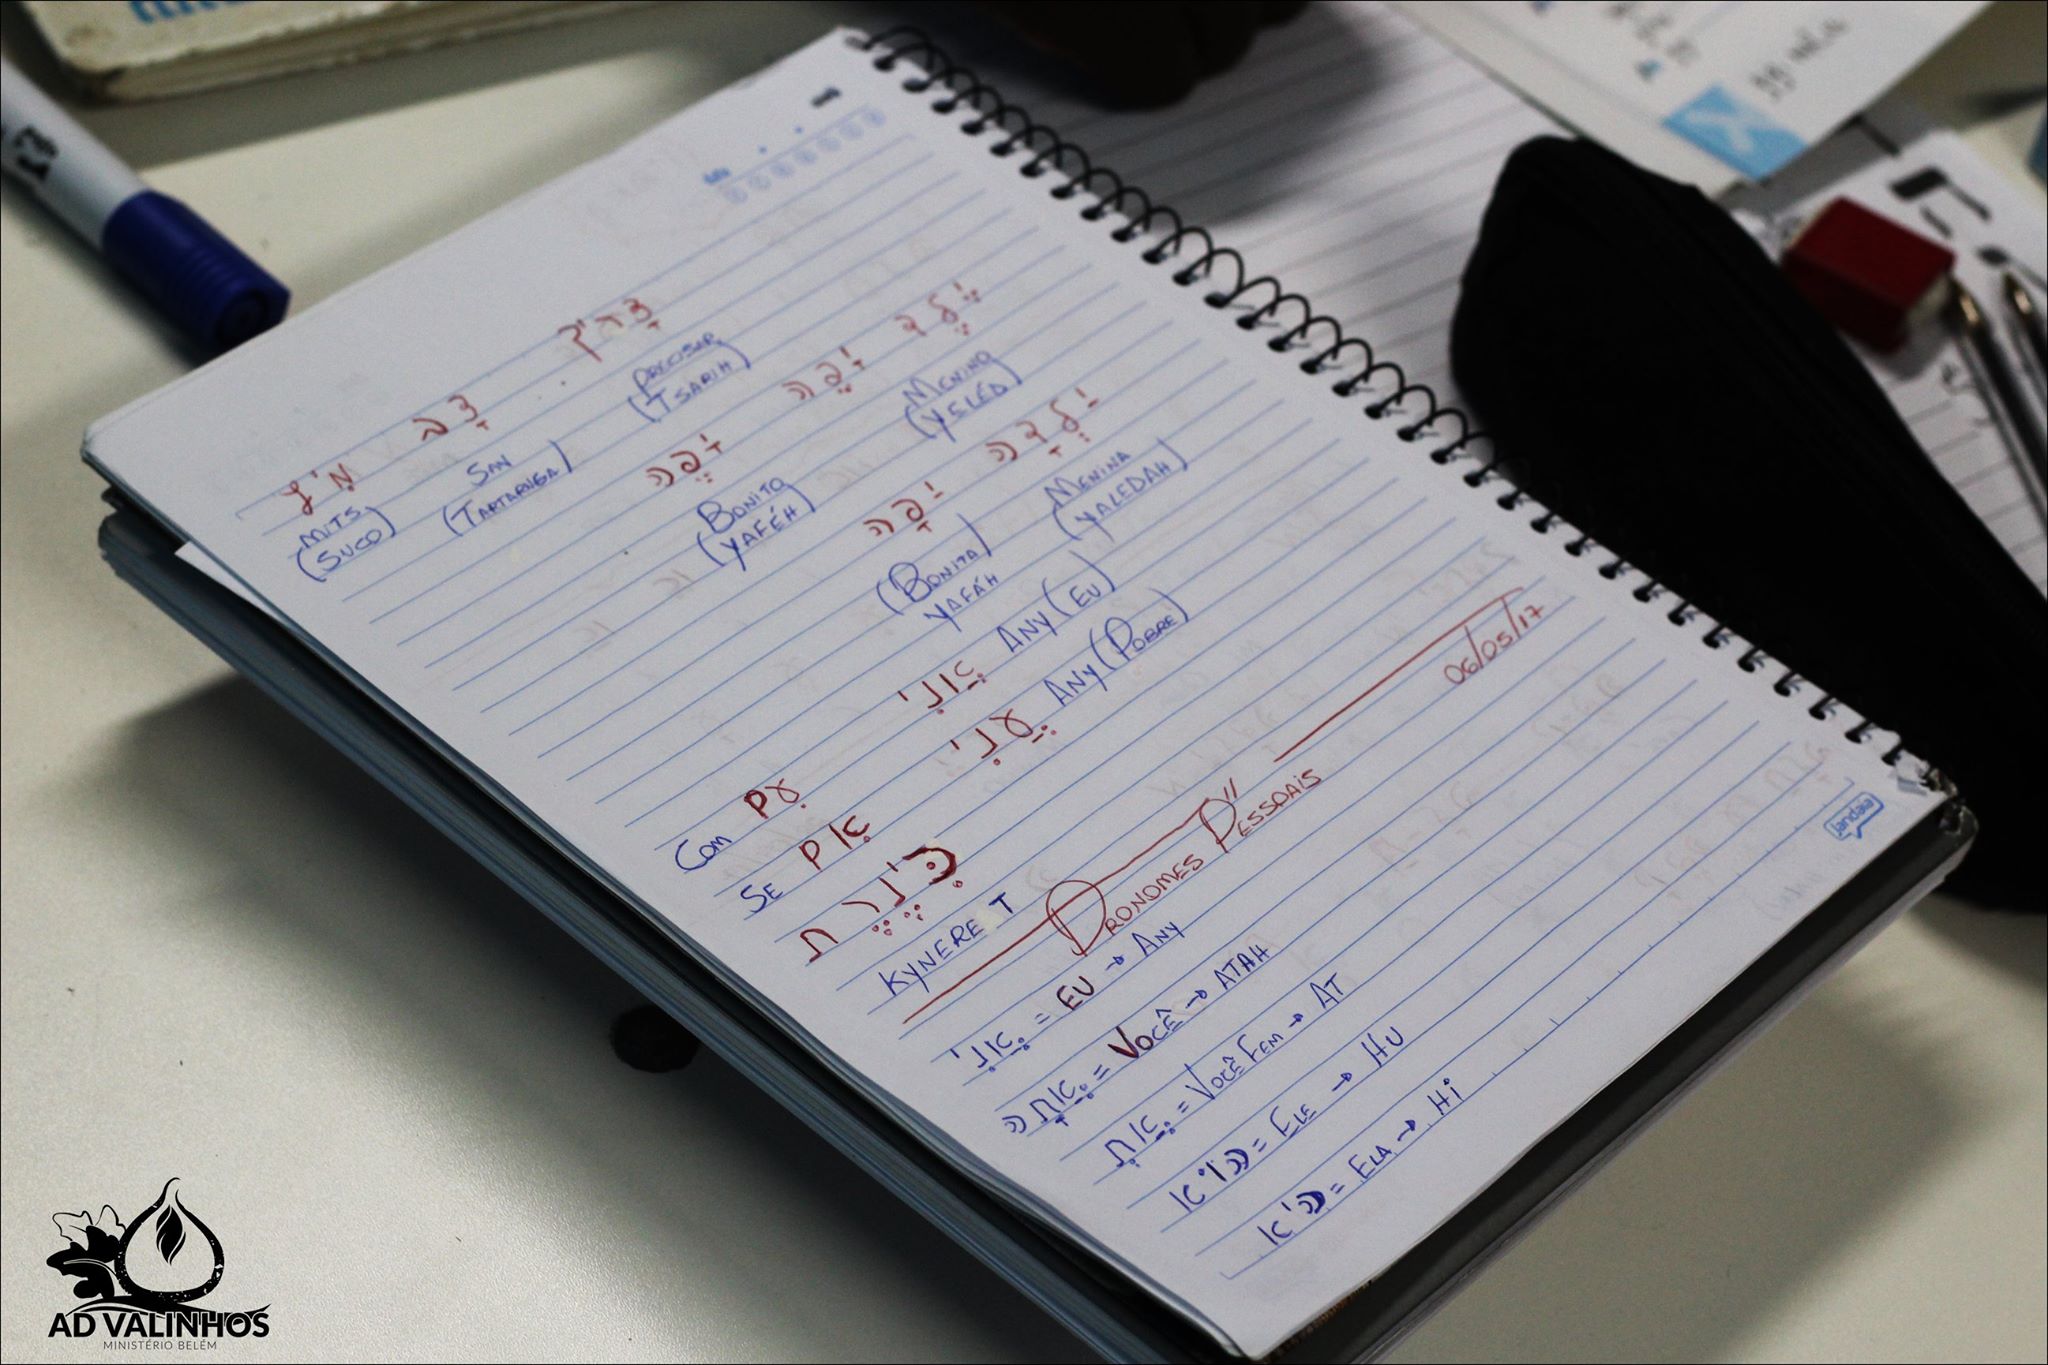 צָרִיךְ
PRECISAR
(TSARIH)
יֶלֶד
MENINO
(YELÉD)
צָב
SAN
(TARTARUGA)
יָפֶה
מִיץ
MITS
(SUCO)
יָפֶה
BONITO
(YAFÉH)
יַלְדָה
MENINA
(YALEDAH)
יָפָה
(BONITA)
YAFÁH
אֲנִי ANY (EU)
עָנִי ANY (POBRE)
COM עִם
SE אִם
כִּנֶרֶת
KYNERET
06/05/17
PRONOMES PESSOAIS
אֲנִי = EU → ANY
אַתָה = VOCÊ → ATAH
אַתְ = VOCÊ FEM → AT
הוּא = ELE → HU
הִיא = ELA → HI
jandaia
AD VALINHOS
MINISTÉRIO BELÉM